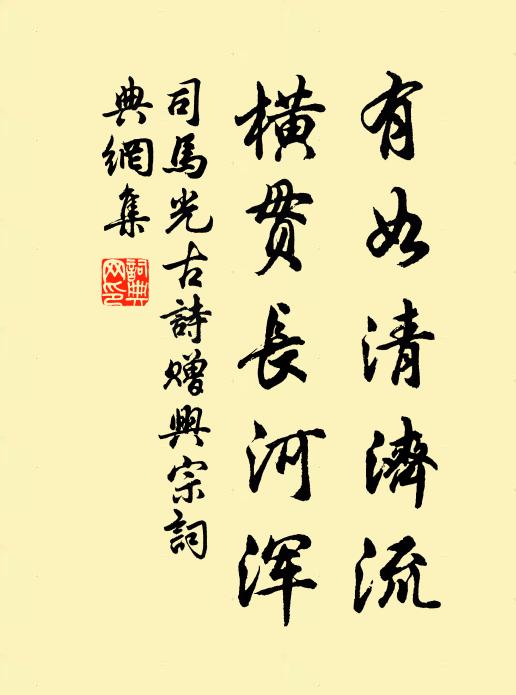 有如清濟流
橫貫長河浑
司馬光古詩贈興宗詞
典網集
詞典网印